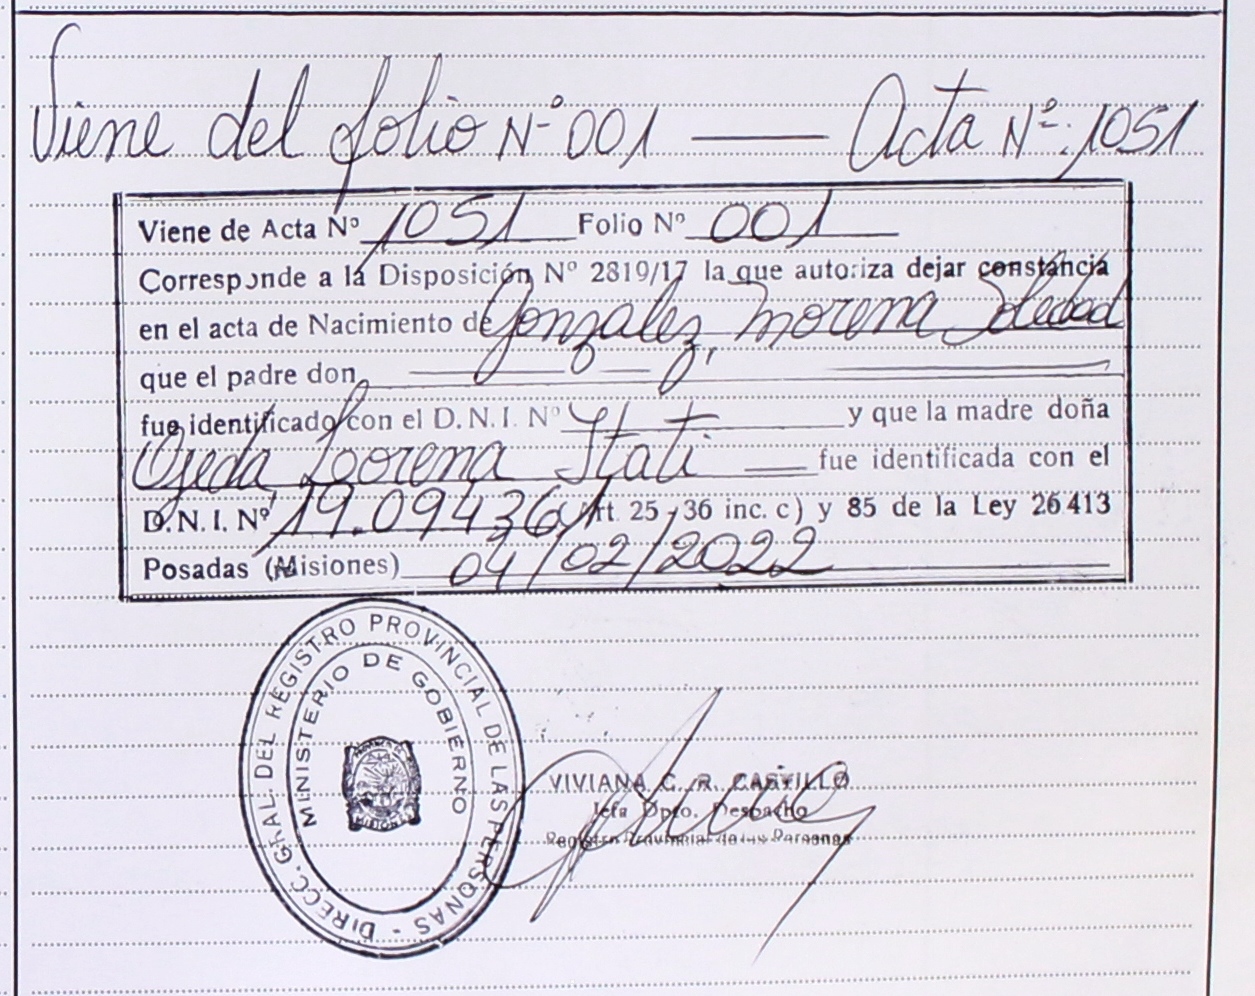 Viene del folio Nº 001 — Acta Nº: 1051
Viene de Acta Nº 1051 Folio Nº 001
Corresponde a la Disposición Nº 2819/17 la que autoriza dejar constancia
en el acta de Nacimiento de Gonzalez, Morena Soledad
que el padre don —
fue identificado con el D.N.I. Nº — y que la madre doña
Ojeda, Lorena Itati — fue identificada con el
D.N.I. Nº 19.094.361 Art. 25 - 36 inc. c) y 85 de la Ley 26413
Posadas (Misiones) 04/02/2022
DIRECC. GRAL. DEL REGISTRO PROVINCIAL DE LAS PERSONAS -
MINISTERIO DE GOBIERNO
MISIONES
VIVIANA C. R. CASTILLO
Jefa Dpto. Despacho
Registro Provincial de las Personas